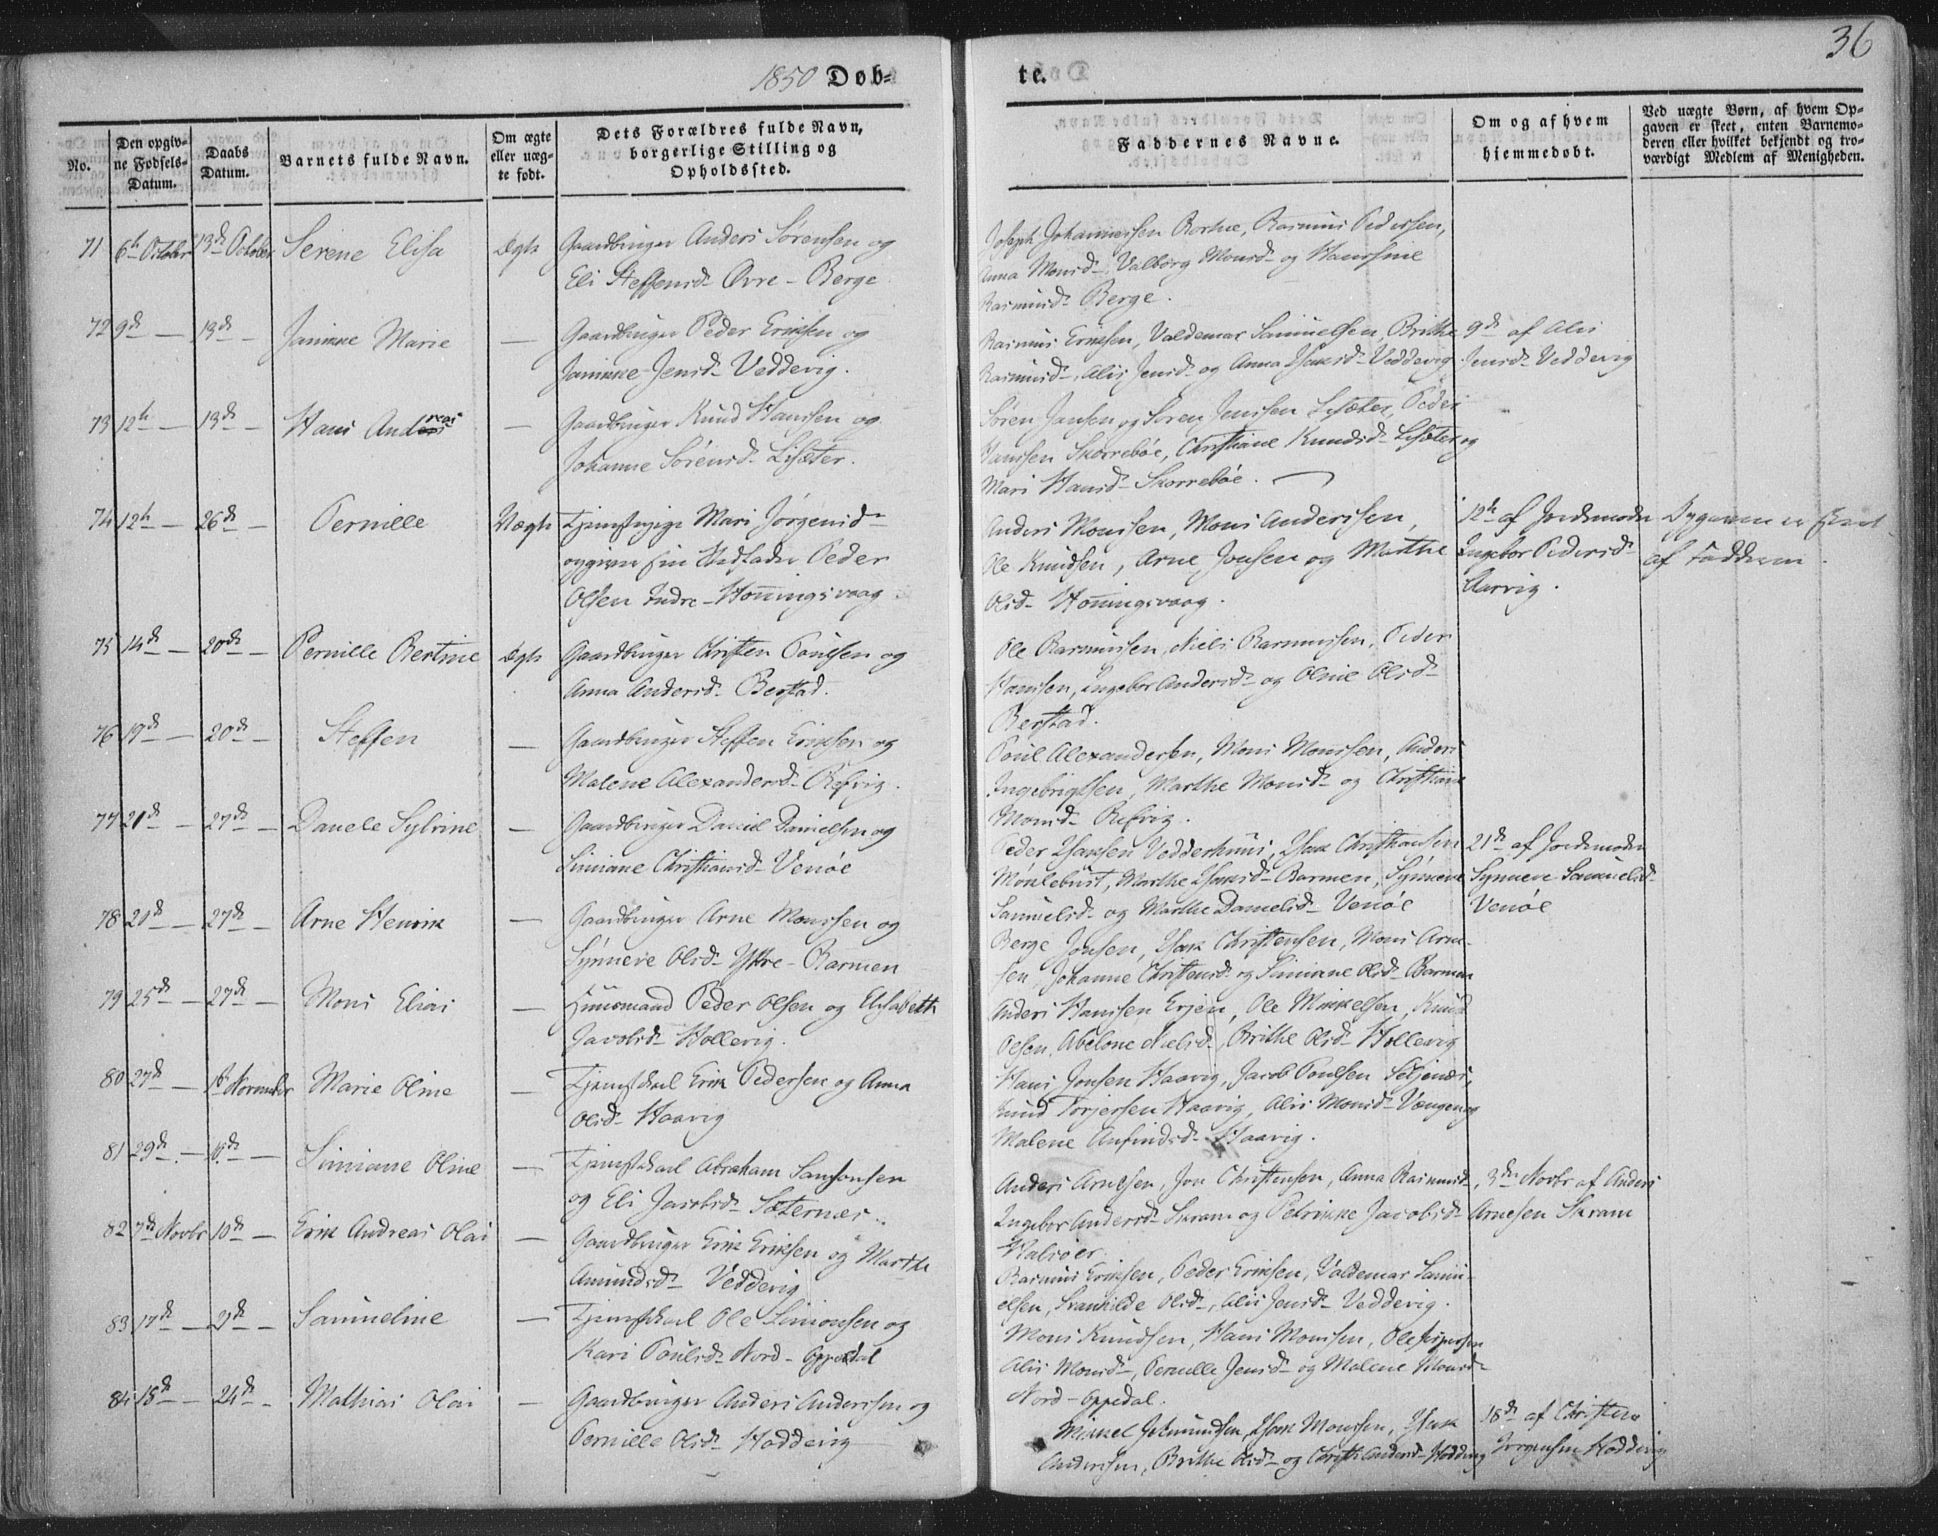 1850 Døb-
No.
Den opgiv-
ne Fødsels-
Datum.
Daabs
Datum.
Barnets fulde Navn.
Om ægte
eller uæg-
te født.
Dets Forældres fulde Navn,
borgerlige Stilling og
Opholdssted.
71 6te October 13de October Serene Elisa Ægte Gaardbruger Anders Sørensen og
Eli Steffensd. Øvre-Berge
72 9de — 13de — Janikke Marie — Gaardbruger Peder Eriksen og
Janikke Jensd. Veddevig.
73 12te — 13de — Hans Andreas — Gaardbruger Knud Hanssen og
Johanne Sørensd. Lisæter.
74 12te — 26de — Pernille Uægte Tjenestepige Mari Jørgensd.
opgiver fin Udlagde Peder
Olsen Indre-Honningsvaag
75 14de — 20de — Pernille Bertine Ægte Gaardbruger Christen Poulsen og
Anna Andersd. Berstad.
76 19de — 20de — Steffen — Gaardbruger Steffen Eriksen og
Malene Alexandersd. Refvig.
77 21de — 27de — Danele Sylvine — Gaardbruger Daniel Danielsen og
Simiane Christiansd. Venöe
78 21de — 27de — Arne Henrik — Gaardbruger Arne Monssen og
Synneve Olsd. Ytre-Barmen
79 25de — 27de — Mons Elias — Huusmand Peder Olsen og Elisabeth
Jacobsd. Hollevig.
80 27de — 1ste November Marie Oline — Tjenestekarl Erik Pedersen og Anna
Olsd. Haavig
81 29de — 10de — Simiane Oline — Tjenestekarl Abraham Samsonsen
og Eli Jacobsd. Sæternæs.
82 7de Novbr 10de — Erik Andreas Olai — Gaardbruger Erik Eriksen og Marthe
Amundsd. Veddevig
83 17de — — Samueline — Tjenestekarl Ole Simonsen og
Kari Poulsd. Nord-Oppedal
84 18de — 24de — Mathias Olai — Gaardbruger Anders Anderssen og
Pernille Olsd. Hoddevig
36
te.
Faddernes Navne.
Om og af hvem
hjemmedøbt.
Ved uægte Børn, af hvem Op-
gaven er skeet, enten Barnemo-
deren eller hvilket bekjendt og tro-
værdigt Medlem af Menigheden.
Joseph Johannessen Rasmus Pedersen,
Anna Monsd., Valborg Monsd. og Hanssine
Rasmusd. Berge.
Rasmus Eriksen, Valdemar Samuelsen, Brithe 9de af Alis
Rasmusd., Alis Jensd. og Anna Isaksd. Veddevig. Jensd. Veddevig
Søren Jensen og Søren Jenssen Lisæter, Peder
Hanssen Skorrebøe, Christiane Knudsd. Lisæter og
Mari Hansd. Skorrebøe.
Anders Monssen, Mons Anderssen, 12te af Jordemoder Opgaven er skeet
Ole Knudsen, Arne Jonsen og Marthe Ingebor Pedersd. af Faderen.
Olsd. Honningsvaag.
Ole Rasmussen, Niels Rasmussen, Peder
Hanssen, Ingebor Andersd. og Oline Olsd.
Berstad.
Poul Alexandersen, Mons Monssen, Anders
Ingebrigtsen, Marthe Monsd. og Christiane
Monsd. Refvig.
Peder Isaksen Vedderhuus, Isak Christiansen 21de af Jordemoder
Møklebust, Marthe Isaksd. Barmen, Synneve Synneve Samuelsd.
Samuelsd. og Marthe Danielsd. Venöe Venöe
Berge Jonsen, Isak Christensen, Mons Arne-
sen, Johanne Christensd. og Simiane Olsd. Barmen
Anders Hanssen Ervien, Ole Mikkelsen, Knud
Olsen, Abelone Nielsd., Brithe Olsd. Hollevig
Hans Jonsen Haavig, Jacob Poulsen Siljenæs,
Knud Torjersen Haavig, Alis Monsd. Vængen og
Malene Anfindsd. Haavig.
Anders Arnesen, Jon Christensen, Anna Rasmusd., 3de Novbr af Anders
Ingebor Andersd. Skram og Petrikke Jacobsd. Arnesen Skram
Halvøer.
Rasmus Eriksen, Peder Eriksen, Valdemar Samu-
elsen, Svanhilde Olsd., Alis Jensd. Veddevig.
Mons Knudsen, Hans Monssen, Ole Jespersen
Alis Monsd., Pernille Jensd. og Malene Monsd.
Nord-Oppedal.
Mikkel Isak Monssen, Isak 18de af Christen
Andersen, Brithe Olsd. og Christi Andersd. Hoddevig Jørgensen Hoddevig